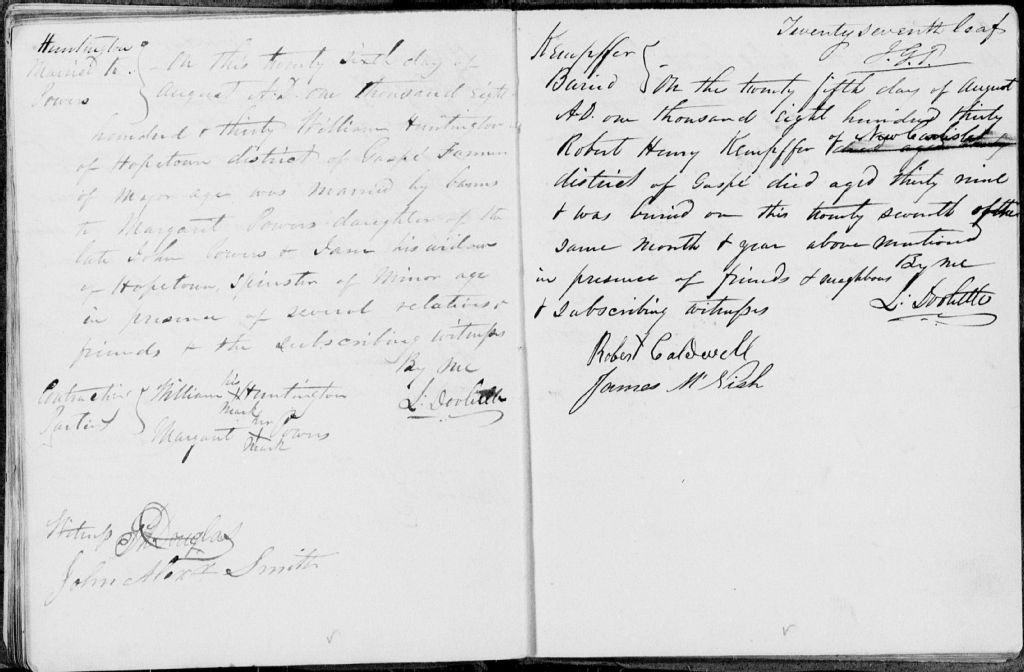 Huntington
Married to
Powers
On this twenty sixth day of
August A.D. one thousand eight
hundred & thirty William Huntington
of Hopetown district of Gaspé Farmer
of Major age was married by banns
to Margaret Powers daughter of the
late John Powers & Jane his widow
of Hopetown, Spinster of Minor age
in presence of several relations &
friends & the subscribing witness
By me
L: Doolittle
Contracting
Parties
William his Huntington
mark
Margaret her Powers
mark
Witness Douglas
John Alexr Smith
Twenty seventh leaf
J.G.T.
Kempffer
Buried
On the twenty fifth day of August
A.D. one thousand eight hundred thirty
Robert Henry Kempffer of New Carlisle
district of Gaspé died aged thirty nine
& was buried on this twenty seventh of the
same month & year above mentioned
in presence of friends & neighbours
& subscribing witness
By me
L: Doolittle
Robert Caldwell
James McNish